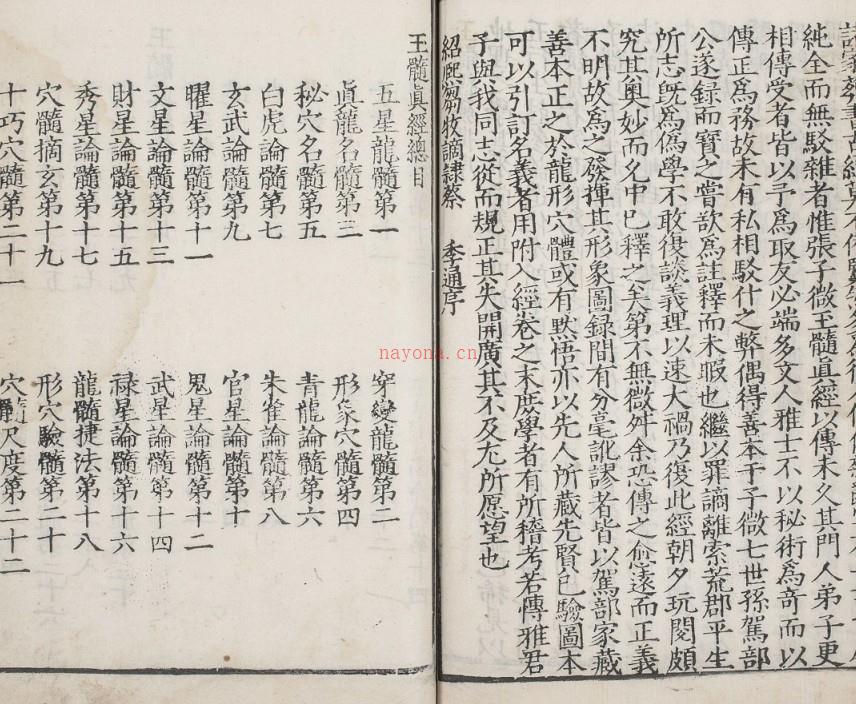 純全而無駁雜者惟張子微玉髓真經以傳未久其門人弟子更
相傳受者皆以予為取友必端多文人雅士不以秘術為奇而以
傳正為務故未有私相駁什之弊偶得善本于子微七世孫駕部
公遂録而寶之嘗欲為註釋而未暇也繼以罪謫離索荒郡平生
所志旣為偽學不敢復談義理以速大禍乃復此經朝夕玩閱頗
究其奥妙而允中巳釋之矣第不無微舛余恐傳之愈遠而正義
不明故為之發揮其形象圖録間有分毫訛謬者皆以駕部家藏
善本正之於龍形穴體或有默悟亦以先人所藏先賢巳驗圖本
可以引訂名義者用附入經卷之末庶學者有所稽考若博雅君
子與我同志從而規正其失開廣其不及尤所愿望也
紹熈 牧謫隷蔡 季通序
玉髓眞經總目
五星龍髓第一 穿變龍髓第二
眞龍名髓第三 形象穴髓第四
秘穴名髓第五 青龍論髓第六
白虎論髓第七 朱雀論髓第八
玄武論髓第九 官星論髓第十
曜星論髓第十一 鬼星論髓第十二
文星論髓第十三 武星論髓第十四
財星論髓第十五 禄星論髓第十六
秀星論髓第十七 龍髓捷法第十八
穴髓摘玄第十九 形穴驗髓第二十
十巧穴髓第二十一 穴髓尺度第二十二
nayona.cn